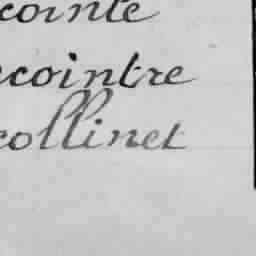 cointe
ecointre
collinet